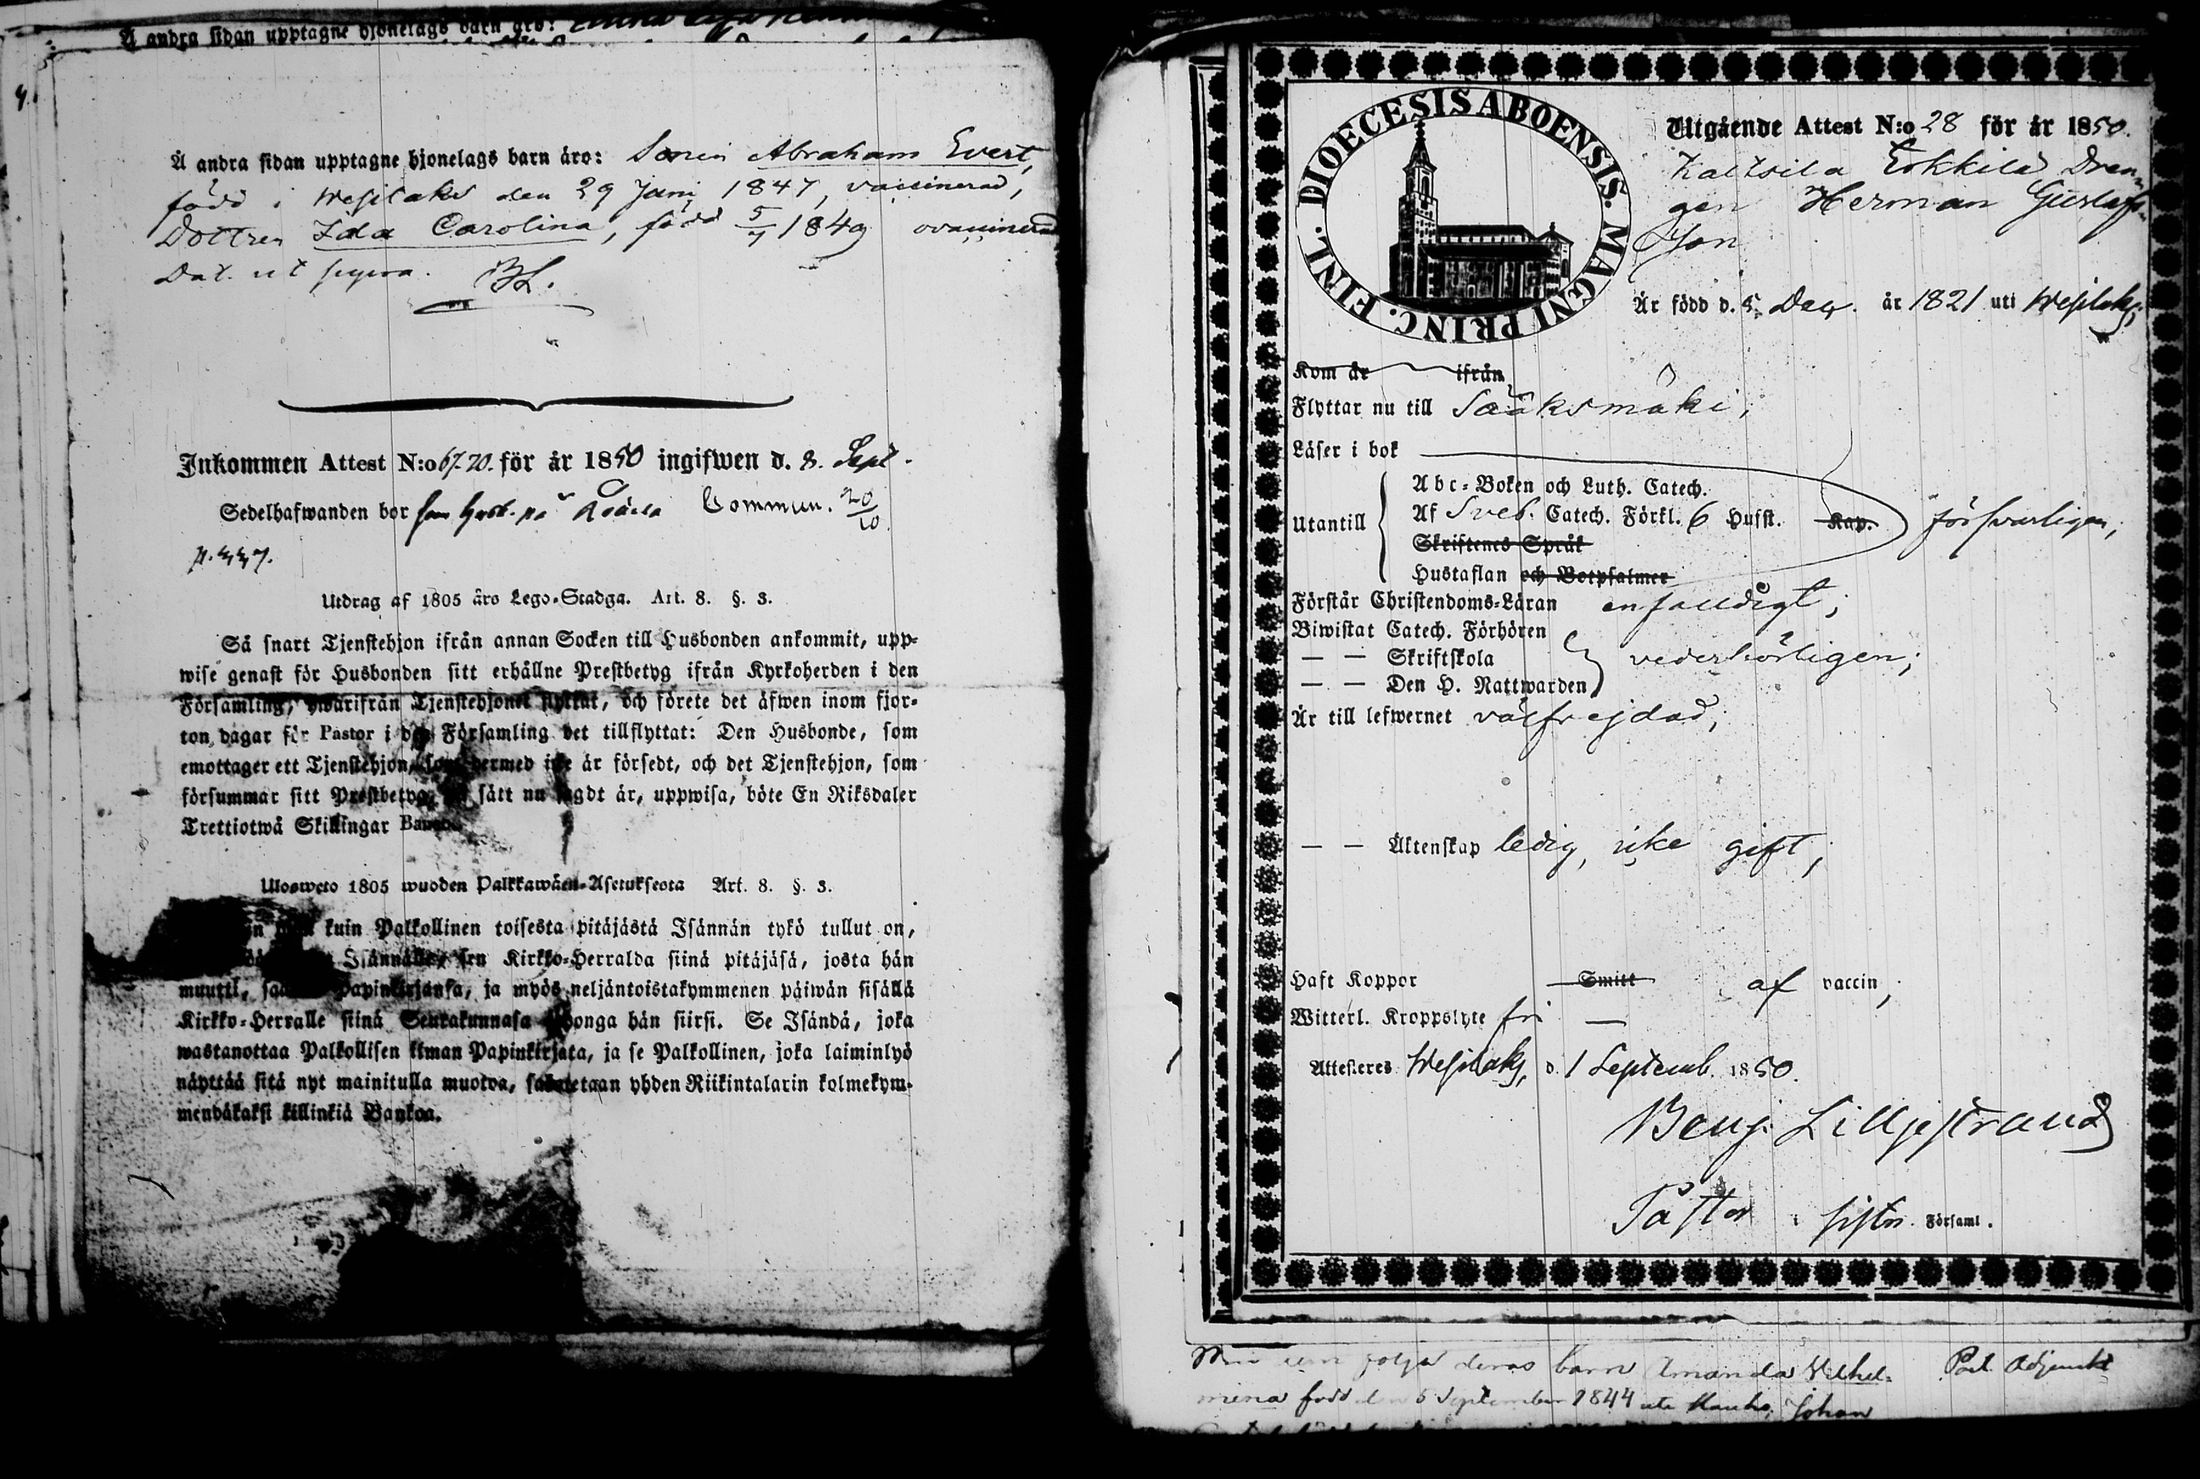 Å andra sidan upptagne hjonelags barn äro:
Å andra sidan upptagne hjonelags barn äro: Sonen Abraham Evert,
född i Wesilaks den 29 Junj 1847, vaccinerad,
Dottren Ida Carolina, född 5/7 1849 ovaccinerad
Dat. ut supra. BL.
Inkommen Attest N:o 67.70. för år 1850 ingifwen d. 8. Sept.
Sedelhafwanden bor på Commun. 20/10
p. 447.
Utdrag af 1805 års Lego-Stadga. Art. 8. §. 3.
Så snart Tjenstehjon ifrån annan Socken till Husbonden ankommit, upp-
wise genast för Husbonden sitt erhållne Prestbetyg ifrån Kyrkoherden i den
Församling, hwarifrån Tjenstehjonet flyttat, och förete det äfwen inom fjor-
ton dagar för Pastor i den Församling det tillflyttat: Den Husbonde, som
emottager ett Tjenstehjon, som dermed icke är försedt, och det Tjenstehjon, som
försummar sitt Prestbetyg, sätt nu sagdt är, uppwisa, böte En Riksdaler
Trettiotwå Skillingar Banco.
Ulosweto 1805 wuoden Palkkawäen-Asetuksesta Art. 8. §. 3.
kuin Palkollinen toisesta pitäjästä Isännän tykö tullut on,
Isännälle, sen Kirkko-Herralda siinä pitäjäsä, josta hän
muutti, Papinkirjansa, ja myös neljäntoistakymmenen päiwän sisällä
Kirkko-Herralle siinä Seurakunnasa hän siirsi. Se Isändä, joka
wastanottaa Palkollisen ilman Papinkirjata, ja se Palkollinen, joka laiminlyö
näyttää sitä nyt mainitulla muotoa, sakotetaan yhden Riikintalarin kolmekym-
mendäkaksi killinkiä Bankoa.
DIOECESIS ABOENSIS. MAGNI PRINC. FINL.
Utgående Attest N:o 28 för år 1850.
Kaltsila Erkkilä Dren-
gen Herman Gustafs-
son
Är född d. 5 Dec. år 1821 uti Wesilaks;
Kom år ifrån
Flyttar nu till Sääksmäki;
Läser i bok
Utantill
Abc-Boken och Luth. Catech.
Af Sveb. Catech. Förkl. 6 Hufst. Kap. försvarligen;
Skriftenes Språk
Hustaflan och Botpsalmer
Förstår Christendoms-Läran enfaldigt;
Biwistat Catech. Förhören
— — Skriftskola vederbörligen;
— — Den H. Nattwarden
Är till lefwernet välfrejdad;
— — Äktenskap ledig, icke gift;
Haft Koppor Smitt af vaccin;
Witterl. Kroppslyte fri —
Attesteres Wesilaks, d. 1 Septemb. 1850.
Benj. Lilljestrand
Pastor i Församl.
deras barn Amanda Vilhel- Past. Adjunct
mina född den 5 September 1844 Johan